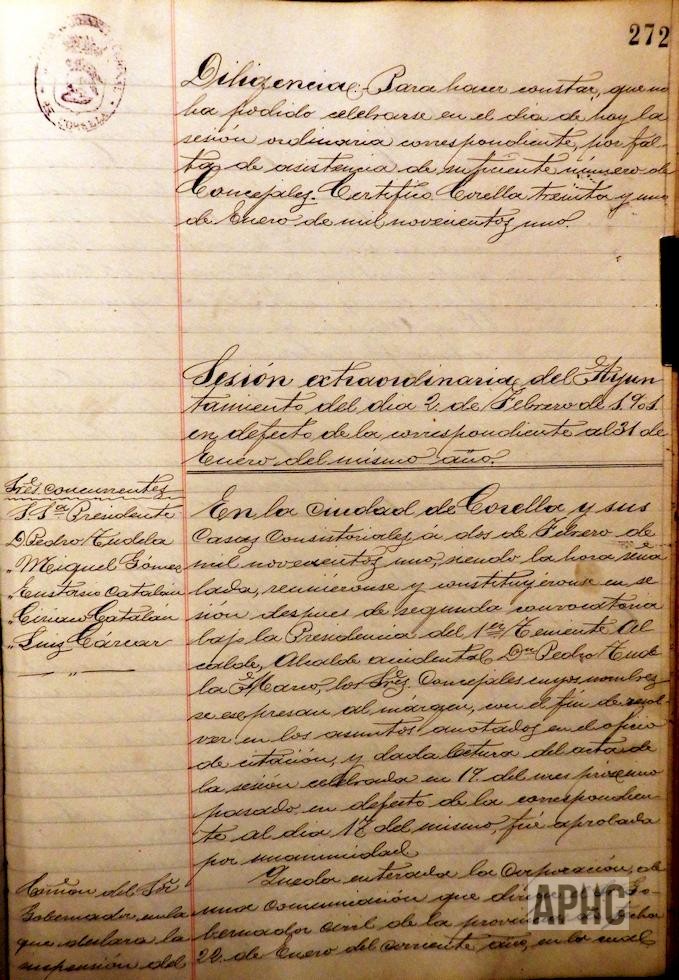 272
Diligencia.- Para hacer constar, que no
ha podido celebrarse en el dia de hoy la
sesión ordinaria correspondiente, por fal-
ta de asistencia de suficiente número de
Concejales. Certifico Corella treinta y uno
de Enero de mil novecientos uno.
Sesión extraordinaria del Ayun
tamiento del dia 2 de Febrero de 1901
en defecto de la correspondiente al 31 de
Enero del mismo año.
Sres. concurrentes
S. Sª Presidente
D. Pedro Tudela
" Miguel Gómez
" Eustasio Catalán
" Ciriaco Catalán
" Luis Cárcar
En la ciudad de Corella y sus
Casas Consistoriales á dos de Febrero de
mil novecientos uno, siendo la hora seña
lada, reuniéronse y constituyeronse en se
sión despues de segunda convocatoria
bajo la Presidencia del 1er Teniente Al
calde, Alcalde accidental Dn Pedro Tude
la Marco, los Sres. Concejales cuyos nombres
se expresan al márgen, con el fin de resol
ver en los asuntos anotados en el oficio
de citación, y dada lectura del acta de
la sesión celebrada en 19 del mes próximo
pasado en defecto de la correspondien-
te al dia 17 del mismo, fué aprobada
por unanimidad
Comon del Sor
Gobernador en la
que declara la
suspensión del
Queda enterada la Corporación, de
una comunicación que
bernador civil de la provincia
22 de Enero del corriente año, en la cual
APHC